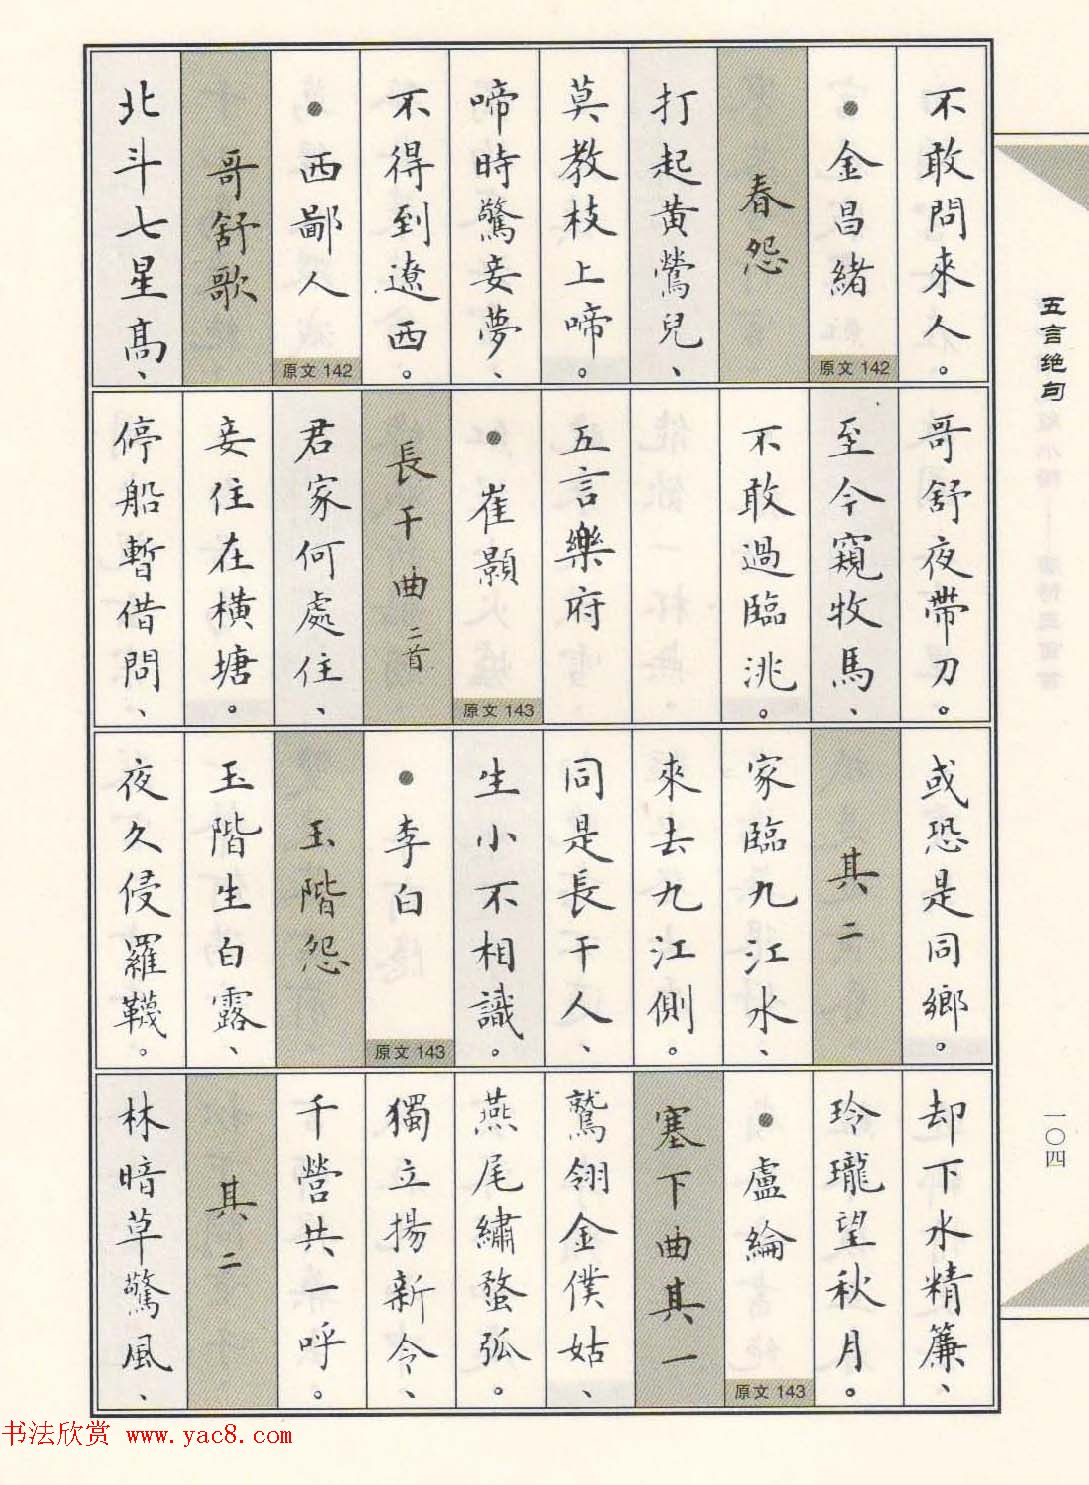 不敢問來人。
●金昌緒
原文 142
春怨
打起黃鶯兒、
莫教枝上啼。
啼時驚妾夢、
不得到遼西。
●西鄙人
原文 142
哥舒歌
北斗七星高、
哥舒夜帶刀。
至今窺牧馬、
不敢過臨洮。
五言樂府
●崔顥
原文 143
長干曲二首
君家何處住、
妾住在橫塘。
停船暫借問、
或恐是同鄉。
其二
家臨九江水、
來去九江側。
同是長干人、
生小不相識。
●李白
原文 143
玉階怨
玉階生白露、
夜久侵羅襪。
却下水精簾、
玲瓏望秋月。
●盧綸
原文 143
塞下曲其一
鷲翎金僕姑、
燕尾繡蝥弧。
獨立揚新令、
千營共一呼。
其二
林暗草驚風、
五言绝句
一〇四
书法欣赏 www.yac8.com